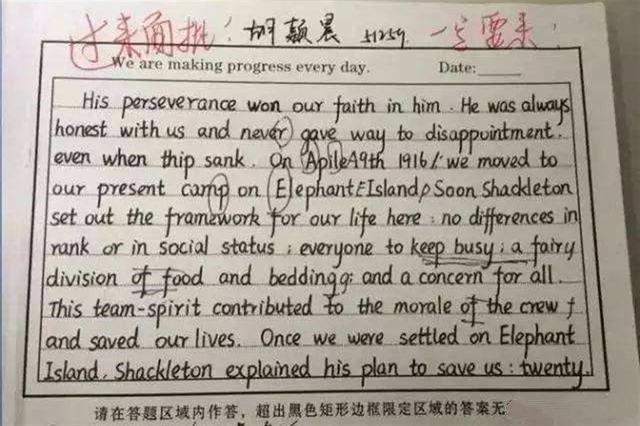 过来面批! 胡颖晨 51259 一定要来!
We are making progress every day. Date:
His perseverance won our faith in him. He was always
honest with us and never gave way to disappointment.
even when thip sank. On Apile A9th 1916/ we moved to
our present camp on Elephant Island, Soon Shackleton
set out the framework for our life here: no differences in
rank or in social status; everyone to keep busy; a fairy
division of food and beddingg; and a concern for all.
This team-spirit contributed to the morale of the crew
and saved our lives. Once we were settled on Elephant
Island, Shackleton explained his plan to save us: twenty.
请在答题区域内作答,超出黑色矩形边框限定区域的答案无